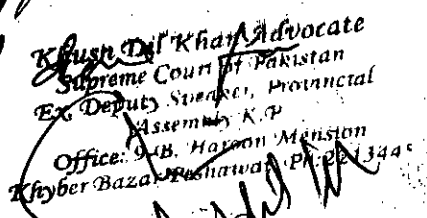 Khush Dil Khan Advocate
Supreme Court of Pakistan
Ex. Deputy Speaker, Provincial
Assembly K.P
Office: 9-B, Haroon Mension
Khyber Bazar Peshawar Ph: